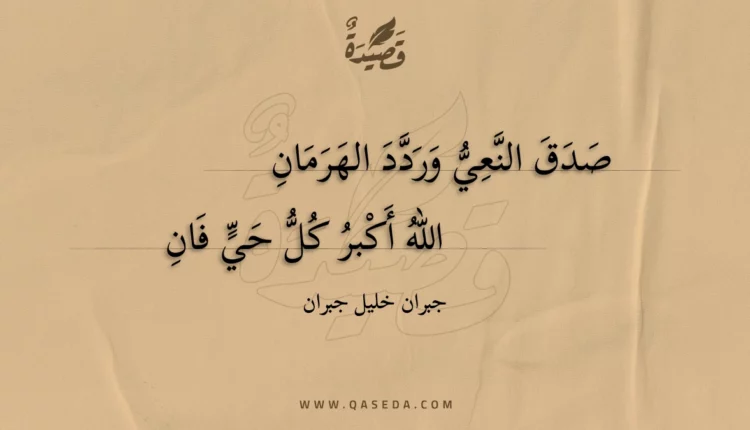 قَصِيدَةٌ
صَدَقَ النَّعِيُّ وَرَدَّدَ الهَرَمَانِ
اللهُ أَكْبرُ كُلُّ حَيٍّ فَانِ
جبران خليل جبران
WWW.QASEDA.COM